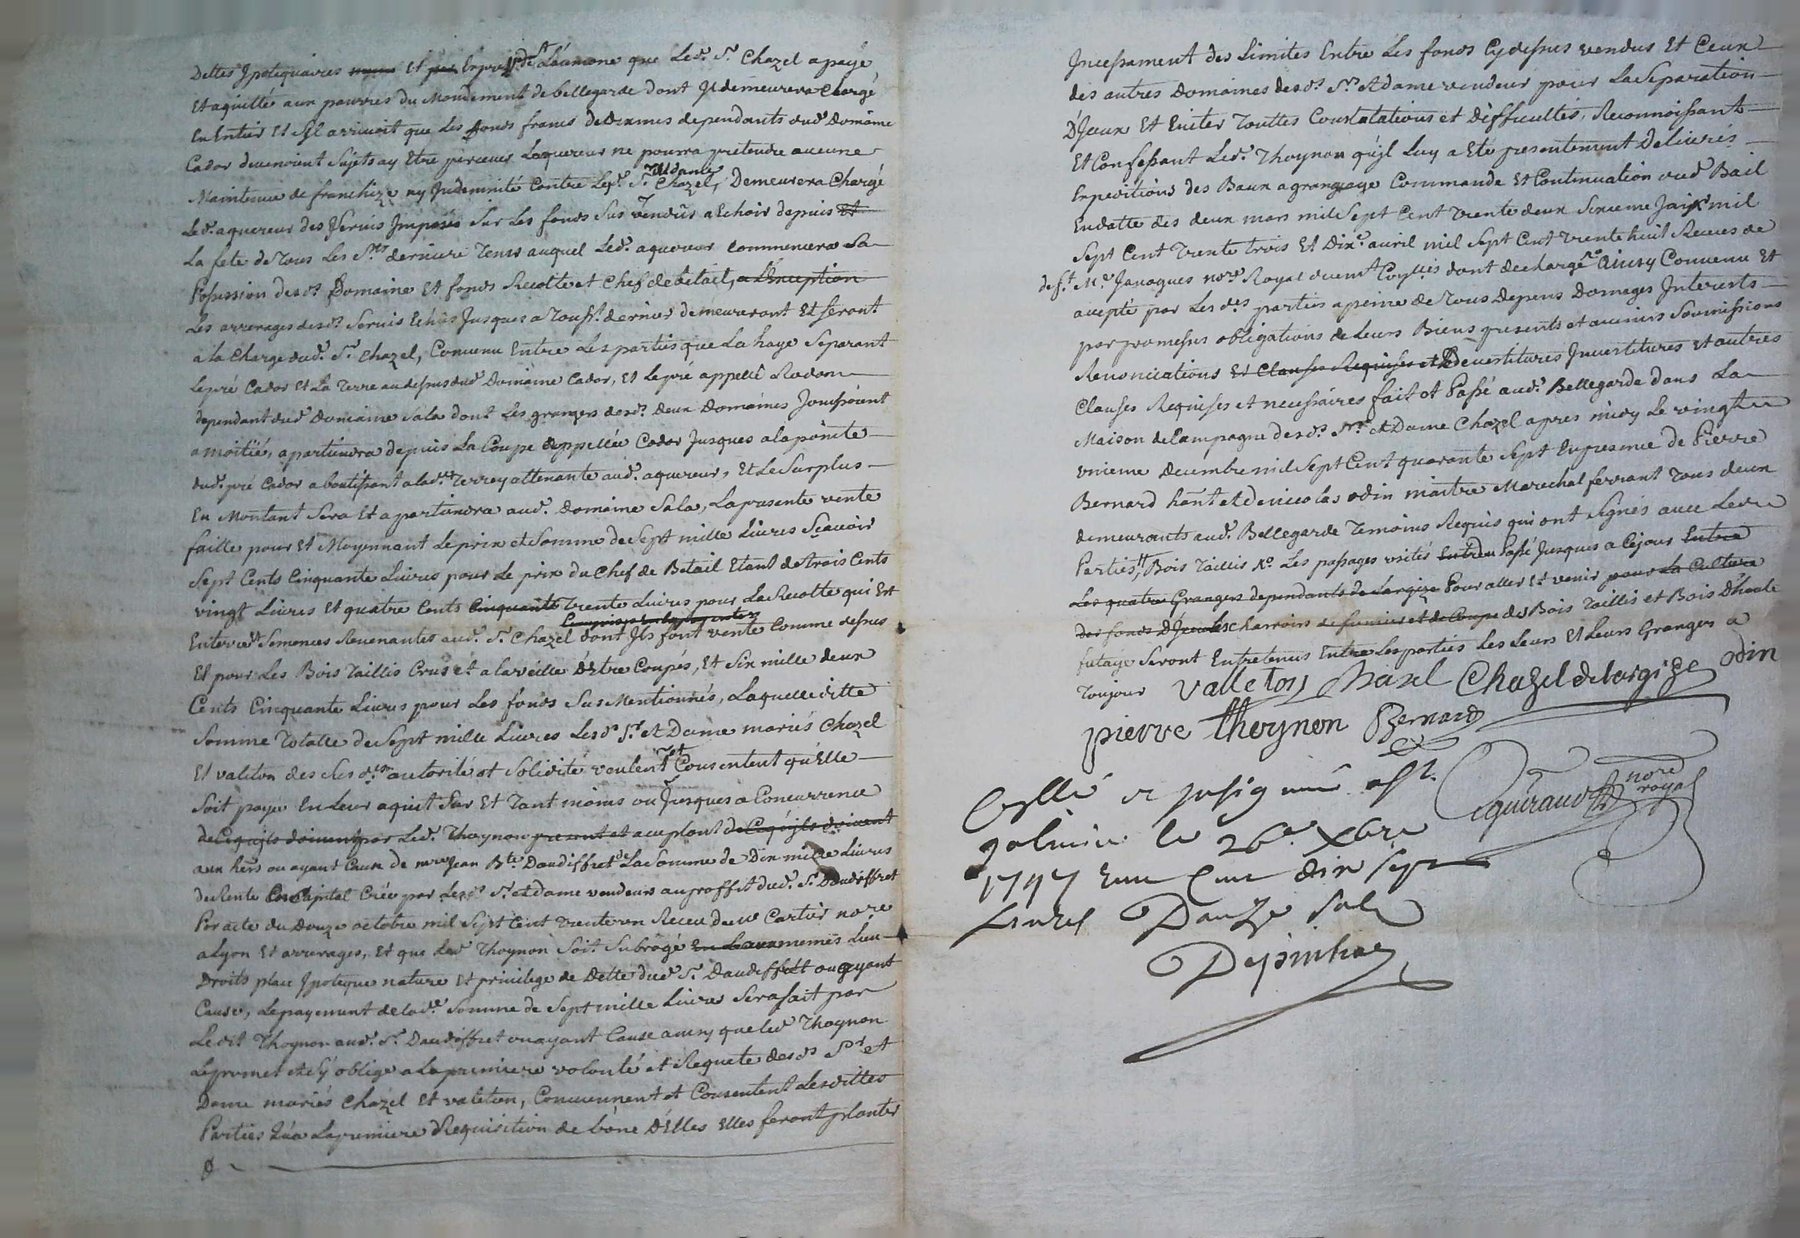 Dettes Ypotequaires Et Expres. de Laumone que Led. Sr. Chazel a payé
Et aquitté aux pauvres du Mandement de bellegarde dont Il demeurera Chargé
En Entier Et sil arrivoit que Les fonds francs de dixmes dependants dud. Domaine
Cador devenoient Sujets a y Etre perceus Laquereur ne pourra pretendre aucune
Maintenue de franchize ny Indemnité Contre Led. Sr. Et dame Chazel, Demeurera Chargé
Led. aquereur des Servis Imposés Sur Les fonds Sus Vendus a Echoir depuis Et
La fete de Tous Les Sts. derniere Tems auquel Led. aquereur Commencera Sa
Possession desd. Domaine Et fonds Recolte et Chef de betail, a L'Exception
Les arrerages desd. Servis Echus Jusques a Toussts. dernier demeureront Et Seront
a La Charge dud. Sr. Chazel, Convenu Entre Les parties que La haye Separant
Le pré Cador Et La Terre au dessus dud. Domaine Cador, Et Le pré appellé Rodon
dependant dud. Domaine Sala dont Les grangers desd. deux Domaines Jouissoient
a moitiée, apartiendra depuis La Coupe appellée Cador Jusques a la pointe
dud. pré Cador aboutissant a lad. Terre y attenante aud. aquereur, Et Le Surplus
En Montant Sera Et apartiendra aud. Domaine Sala, La presente vente
faitte pour Et Moyennant Le prix et Somme de Sept mille Livres Scavoir
Sept Cents Cinquante Livres pour Le prix du Chef de Betail Etant de trois Cents
vingt Livres Et quatre Cents Cinquante Trente Livres pour La Recolte qui Est
Comprise
Enterre et Semences Revenantes aud. Sr. Chazel dont Ils font vente Comme dessus
Et pour Les Bois Taillis Crus et a la veille d'Etre Coupés, Et Six mille deux
Cents Cinquante Livres pour Les fonds Sus Mentionnés, Laquelle ditte
Somme Totalle de Sept mille Livres Lesd. Sr. et Dame mariés Chazel
Et valeton des Susd. autorité et Solidité veulent Et Consentent qu'Elle
Soit payée En Leur aquit Sur Et Tant moins ou Jusques a Concurrence
de Ce quils doivent par Led. Thoynon present et aceptant de Ce quils doivent
aux hers. ou ayant Cause de mre Jean Bte. Daudiffret de La Somme de Dix mille Livres
de Rente En Capital Créé par Lesd. Sr. et dame vendeurs au proffit dud. Sr. Daudiffret
Par acte du Douze octobre mil Sept Cent Trente un Receu Cartier nore
a Lyon Et arrerages, Et que Led. Thoynon Soit Subrogé En memes Lieu
Droits place Ypoteque nature Et privilege de Dette dud. Sr. Daudiffret ou ayant
Cause, Le payement de lad. Somme de Sept mille Livres Sera fait par
Ledit Thoynon aud. Sr. Daudiffret ou ayant Cause ainsy que led. Thoynon
Le promet et S'y oblige a La premiere volonté et Requete desd. Sr. et
Dame mariés Chazel Et valeton, Conviennent et Consentent Lesdittes
Parties qu'a La premiere Requisition de L'une d'Elles Elles feront planter
Incessament des Limites Entre Les fonds Cy dessus vendus Et Ceux
des autres Domaines desd. Sr. Et dame vendeur pour La Separation
D'Iceux Et Eviter Touttes Contestations et Difficultés, Reconnoissant
Et Confessant Led. Thoynon qu'Il Luy a Ete presentement Delivrés
Expeditions des Baux a grangeage Commande Et Continuation dud. Bail
En datte des deux mars mil Sept Cent Trente deux Sixieme mil
Sept Cent Trente trois Et Dixe. avril mil Sept Cent Trente huit Receues de
deft. Me. Janoques nore. Royal duemt. Copllés dont decharge Ainsy Convenu Et
acepté par Lesd. parties a peine de Tous Depens Domages Interests
par promesses obligations de Leurs Biens presents et avenirs Soumissions
Renonciations Et Clauses Requises et Devestitures Investitures et autres
Clauses Requises et necessaires fait et Passé aud. Bellegarde dans La
Maison de Campagne desd. Sr. et Dame Chazel apres midy Le vingt
unieme decembre mil Sept Cent quarante Sept En presence de Pierre
Bernard hant. et de nicolas odin maitre Marechal ferrant Tous deux
demeurants aud. Bellegarde Temoins Requis qui ont Signés avec Led.
Parties, Bois Taillis Xo. Les passages usités Entrée Passé Jusques a Céjour Entre
Les quatre Grangers dependants de Largize Pour aller Et venir pour La Culture
des fonds D'Iceux Charroirs de fumier et de Coupe des Bois Taillis et Bois D'haute
futaye Seront Entretenus Entre Les parties Les Leurs Et Leurs Grangers a
Toujour Valleton Chazel Chazel de Largize odin
pierre thoynon Bernard
guiraud nore royal
Copllé et insinué a St.
galmier le 26e. Xbre
1747 Reçu Cent dix sept
Livres Douze Sols
Despinhac